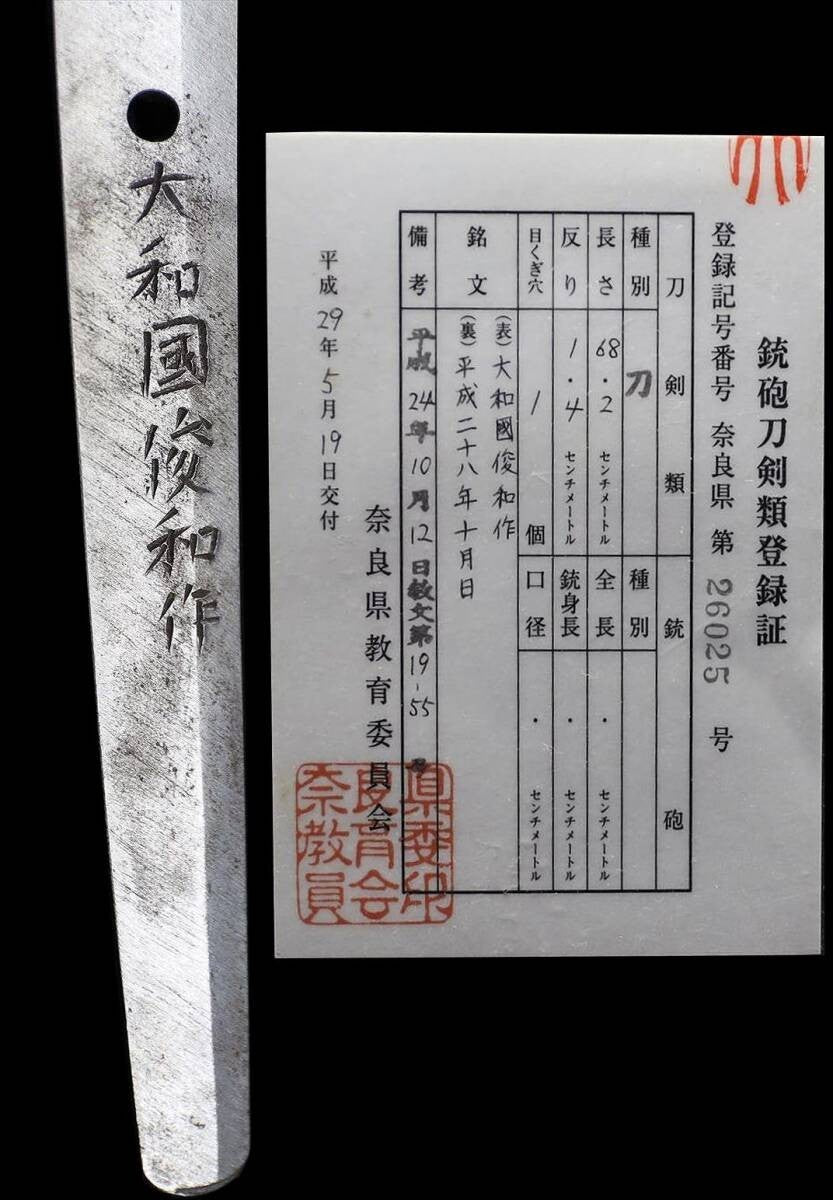 大和國俊和作
銃砲刀剣類登録証
登録記号番号 奈良県 第 26025 号
刀剣類
銃砲
種別 刀
種別
長さ 68.2 センチメートル
全長 ・ センチメートル
反り 1.4 センチメートル
銃身長 ・ センチメートル
目くぎ穴 1 個
口径 ・ センチメートル
銘文 (表)大和國俊和作
(裏)平成二十八年十月日
備考 平成24年10月12日教文第19-55号
奈良県教育委員会
平成29年5月19日交付
県委印
良育会
奈教員